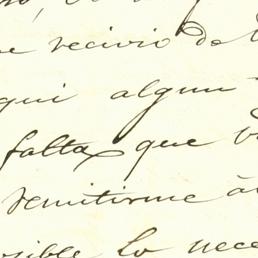 recivio de
qui algun
falta que
remitirme á
sible lo nece